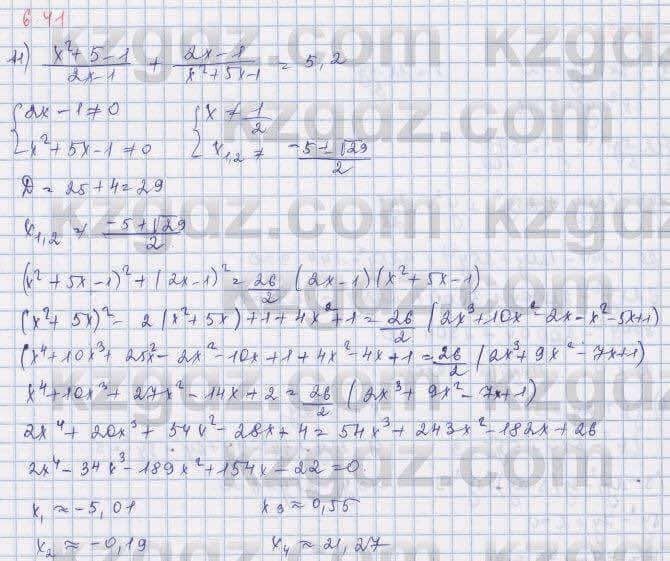 6.41
1) (x²+5-1)/(2x-1) + (2x-1)/(x²+5x-1) = 5,2
{2x-1≠0 {x≠1/2
{x²+5x-1≠0 {x₁,₂ ≠ (-5±√29)/2
D = 25+4=29
x₁,₂ ≠ (-5+√29)/2
(x²+5x-1)²+(2x-1)² = 26/2 (2x-1)(x²+5x-1)
(x²+5x)² - 2(x²+5x)+1+4x²+1 = 26/2 (2x³+10x²-2x-x²-5x+1)
(x⁴+10x³+25x²-2x²-10x+1+4x²-4x+1 = 26/2 (2x³+9x²-7x+1)
x⁴+10x³+27x²-14x+2 = 26/2 (2x³+9x²-7x+1)
2x⁴+20x³+54x²-28x+4 = 54x³+243x²-182x+26
2x⁴-34x³-189x²+154x-22=0
x₁ ≈ -5,01 x₃ ≈ 0,55
x₂ ≈ -0,19 x₄ ≈ 21,27
kzgdz.com